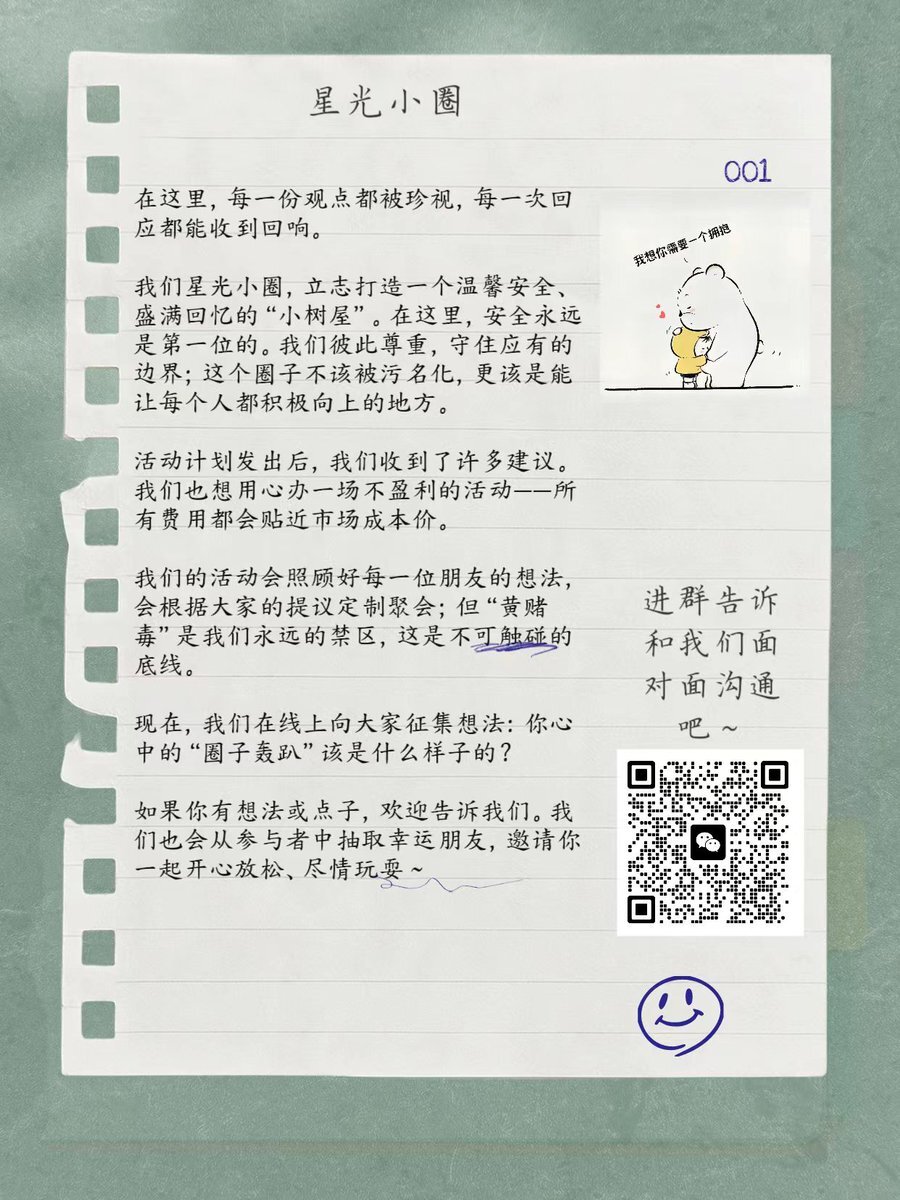 星光小圈
001
在这里，每一份观点都被珍视，每一次回
应都能收到回响。
我们星光小圈，立志打造一个温馨安全、
盛满回忆的“小树屋”。在这里，安全永远
是第一位的。我们彼此尊重，守住应有的
边界；这个圈子不该被污名化，更该是能
让每个人都积极向上的地方。
我想你需要一个拥抱
活动计划发出后，我们收到了许多建议。
我们也想用心办一场不盈利的活动——所
有费用都会贴近市场成本价。
我们的活动会照顾好每一位朋友的想法，
会根据大家的提议定制聚会；但“黄赌
毒”是我们永远的禁区，这是不可触碰的
底线。
现在，我们在线上向大家征集想法：你心
中的“圈子轰趴”该是什么样子的？
如果你有想法或点子，欢迎告诉我们。我
们也会从参与者中抽取幸运朋友，邀请你
一起开心放松、尽情玩耍~
进群告诉
和我们面
对面沟通
吧~